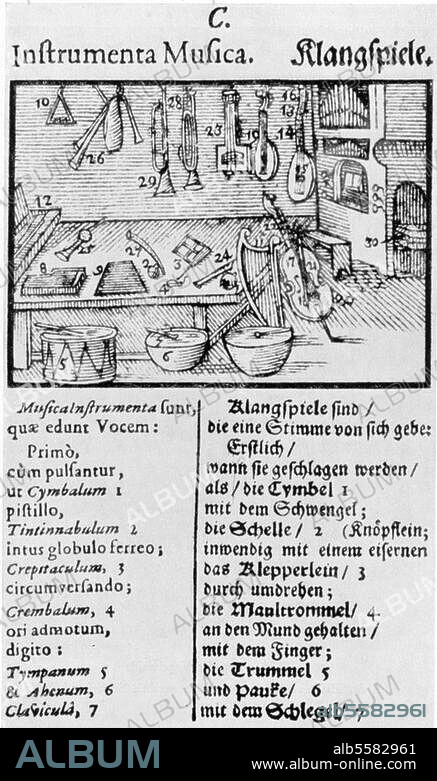 C.
Inſtrumenta Muſica. Klangſpiele.
10 26 28 29 23 19 16 13 14
12 25 8 9 3 24 7 21 30
5 6
Muſica Inſtrumenta ſunt,
quæ edunt Vocem:
Primò,
cùm pulſantur,
ut Cymbalum 1
piſtillo,
Tintinnabulum 2
intus globulo ferreo;
Crepitaculum, 3
circumverſando;
Crembalum, 4
ori admotum,
digito:
Tympanum 5
& Ahenum, 6
Claviculâ, 7
Klangſpiele ſind /
die eine Stimme von ſich geben:
Erſtlich /
wann ſie geſchlagen werden /
als / die Cymbel 1
mit dem Schwengel;
die Schelle / 2 (Knöpflein;
inwendig mit einem eiſernen
das Klepperlein / 3
durch umdrehen;
die Maultrommel / 4.
an den Mund gehalten /
mit dem Finger;
die Trummel 5
und Pauke / 6
mit dem Schlegel / 7
alb5582961
ALBUM
alb5582961
www.album-online.com